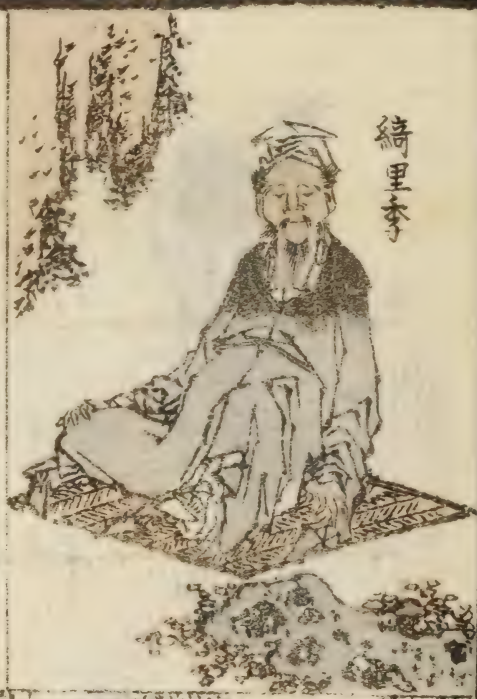 綺里季